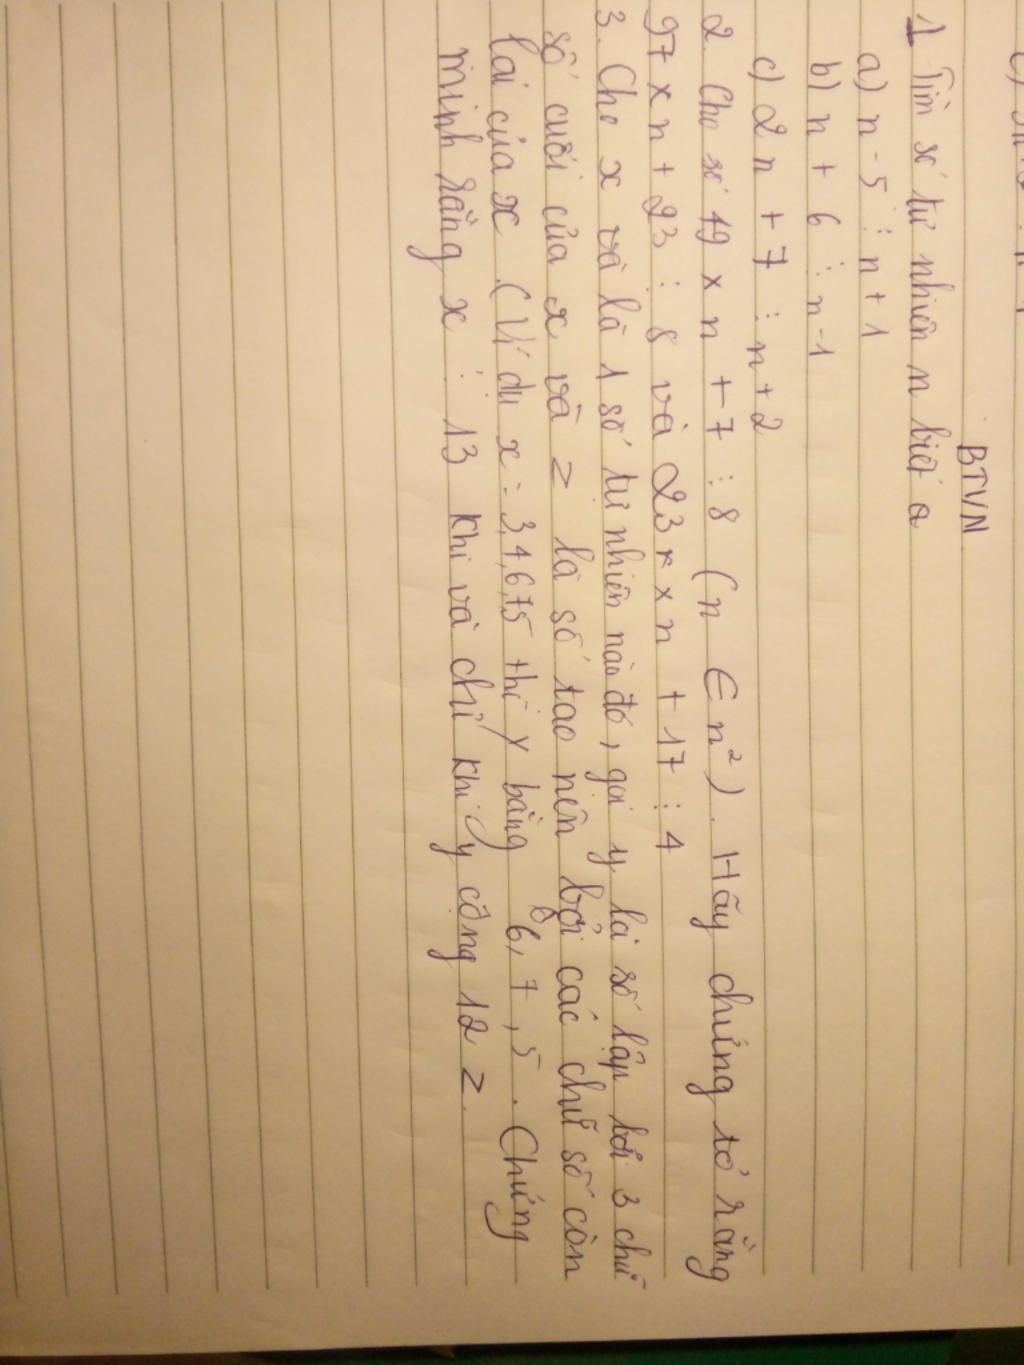 BTVN
1 Tìm số tự nhiên n biết a
a) n - 5 ⋮ n + 1
b) n + 6 ⋮ n - 1
c) 2n + 7 ⋮ n + 2
2 Cho số 49 x n + 7 ⋮ 8 (n ∈ n²). Hãy chứng tỏ rằng
97 x n + 23 ⋮ 8 và 23 x n + 17 ⋮ 4
3. Cho x và là 1 số tự nhiên nào đó, gọi y là số lập bởi 3 chữ
số cuối của x và z là số tạo nên bởi các chữ số còn
lại của x. (Ví dụ x = 3,4,6,7,5 thì y bằng 6, 7, 5. Chứng
minh rằng x ⋮ 13 khi và chỉ khi y cộng 12 z.